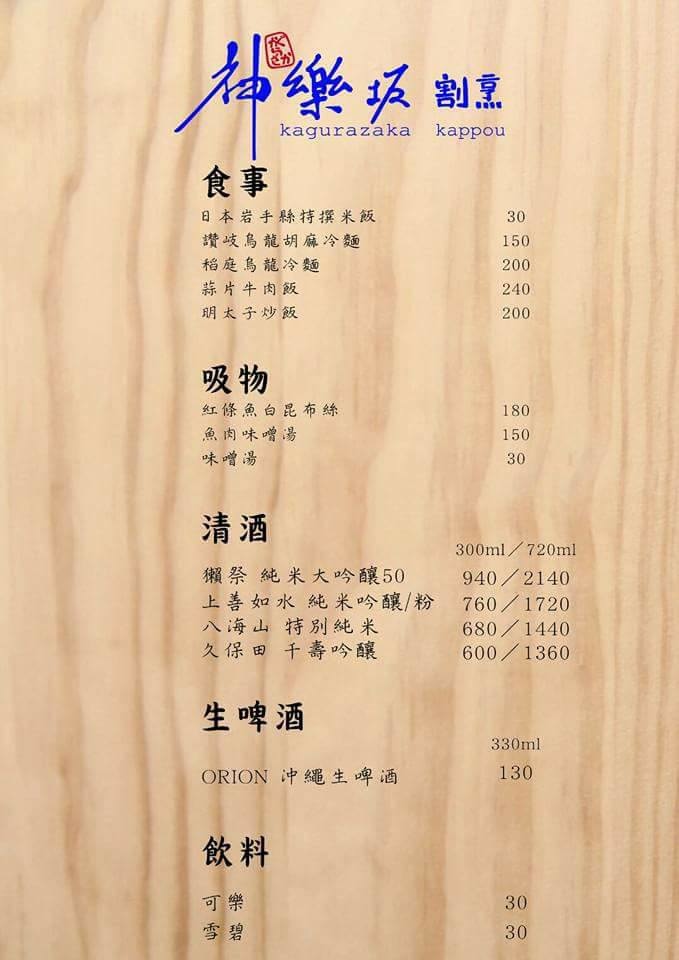 神樂坂 割烹
かぐらざか
kagurazaka kappou
食事
日本岩手縣特撰米飯 30
讚岐烏龍胡麻冷麵 150
稻庭烏龍冷麵 200
蒜片牛肉飯 240
明太子炒飯 200
吸物
紅條魚白昆布絲 180
魚肉味噌湯 150
味噌湯 30
清酒
300ml／720ml
獺祭 純米大吟釀50 940／2140
上善如水 純米吟釀/粉 760／1720
八海山 特別純米 680／1440
久保田 千壽吟釀 600／1360
生啤酒
330ml
ORION 沖繩生啤酒 130
飲料
可樂 30
雪碧 30